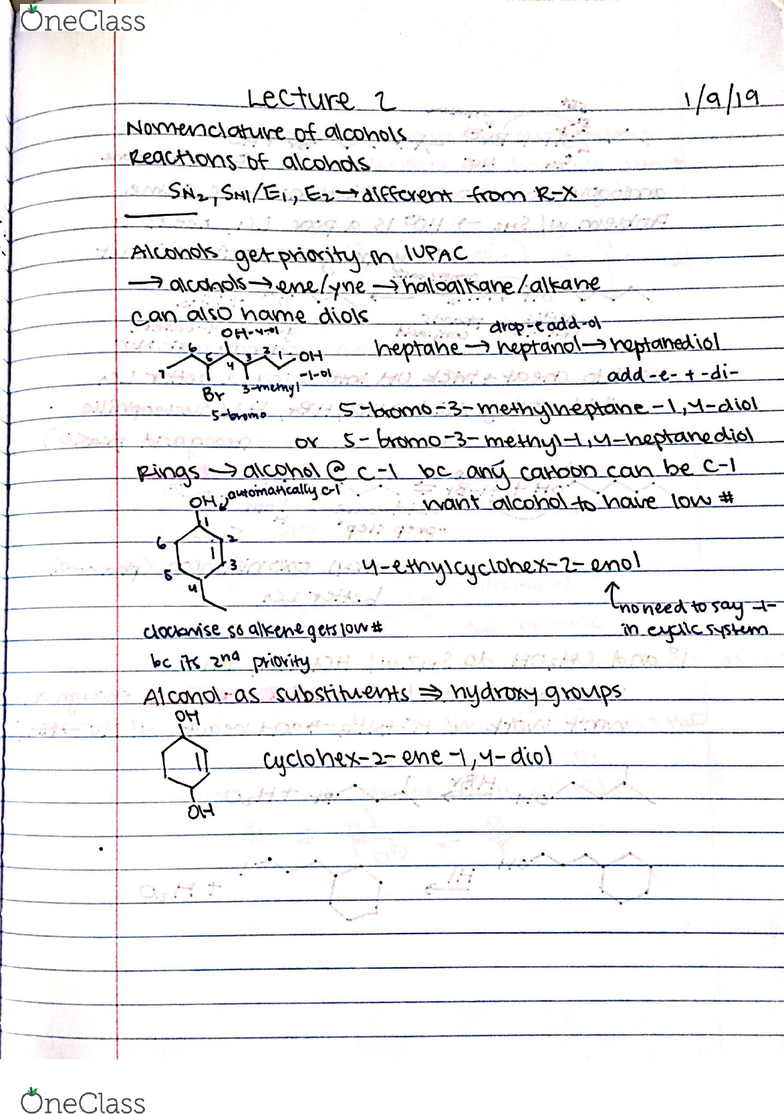 OneClass
Lecture 2 1/9/19
Nomenclature of alcohols
Reactions of alcohols
SN2, SN1/E1, E2 → different from R-X
Alcohols get priority in IUPAC
→ alcohols → ene/yne → haloalkane/alkane
can also name diols
OH-4-ol
drop-e add-ol
heptane → heptanol → heptanediol
add -e- + -di-
7 6 5 4 3 2 1 OH
-1-ol
Br 3-methyl
5-bromo
5-bromo-3-methylheptane-1,4-diol
or 5-bromo-3-methyl-1,4-heptanediol
Rings → alcohol @ C-1 bc any carbon can be C-1
OH automatically c-1
want alcohol to have low #
1
6 2
5 3
4
4-ethylcyclohex-2-enol
no need to say -1-
in cyclic system
clockwise so alkene gets low #
bc its 2nd priority
Alcohol as substituents ⇒ hydroxy groups
OH
cyclohex-2-ene-1,4-diol
OH
OneClass